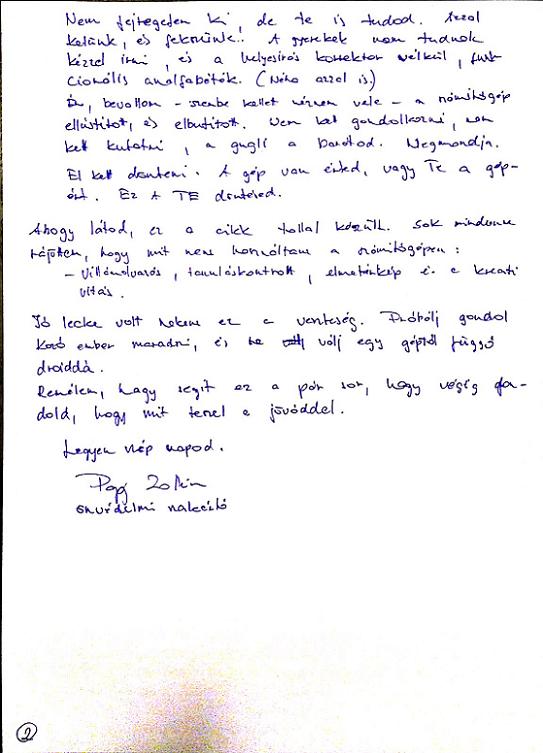 Nem fejtegetem ki, de te is tudod. Azzal
kelünk, és fekszünk. A gyerekek nem tudnak
kézzel írni, és a helyesírás korrektor nélkül, funk
cionális analfabéták. (Néha azzal is)
Én, bevallom - szembe kellet néznem vele - a számítógép
ellustított, és elbutított. Nem kell gondolkozni, nem
kell kutatni, a gugli a barátod. Megmondja.
El kell dönteni. A gép van érted, vagy Te a gép-
ért. Ez A TE döntésed.
Ahogy látod, ez a cikk tollal készült. Sok mindenre
rájöttem, hogy mit nem használtam a számítógépen:
- Villámolvasás, tanuláskontroll, elmetérkép és a kreati
vitás.
Jó lecke volt nekem ez a veszteség. Próbálj gondol
kozó ember maradni, és ne válj egy géptől függő
droiddá.
Remélem, hogy segít ez a pár sor, hogy végig gon-
dold, hogy mit teszel a jövőddel.
Legyen szép napod.
Papp Zoltán
önvédelmi szakértő
2